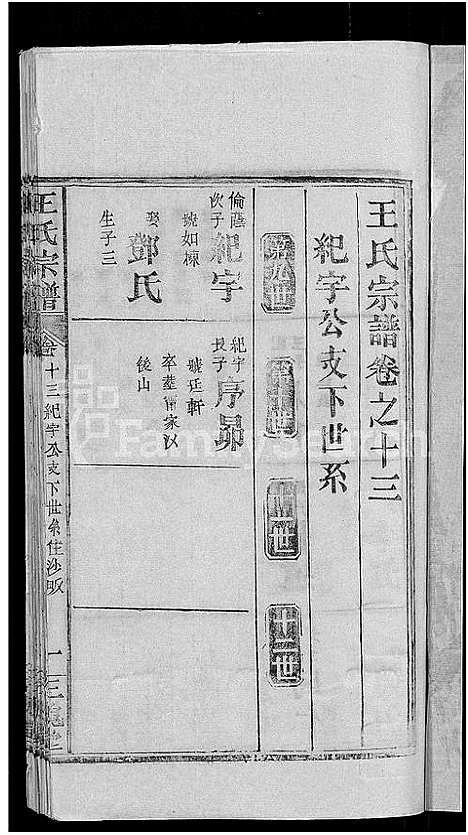 王氏宗譜卷之十三
紀字公支下世系
第九世
第十世
十一世
十二世
倫蔭次子
紀字
號如棟
娶鄧氏
生子三
紀字長子
序昴
號廷軒
卒葬曹家
後山
王氏宗譜
卷十三紀字公支下世系住沙畈
一
三槐堂
FamilySearch